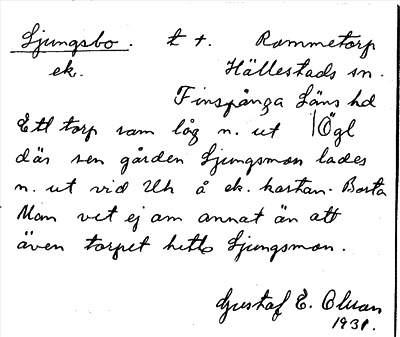 Ljungsbo. t t. Rammetorp
ek. Hällestads sn.
Finspånga Läns hd
Ett torp som låg n. ut /Ögl
där sen gården Ljungsmon lades
n. ut vid Uh å ek. kartan. Borta
Man vet ej om annat än att
även torpet hette Ljungsmon.
Gustaf E. Olsson
1931.